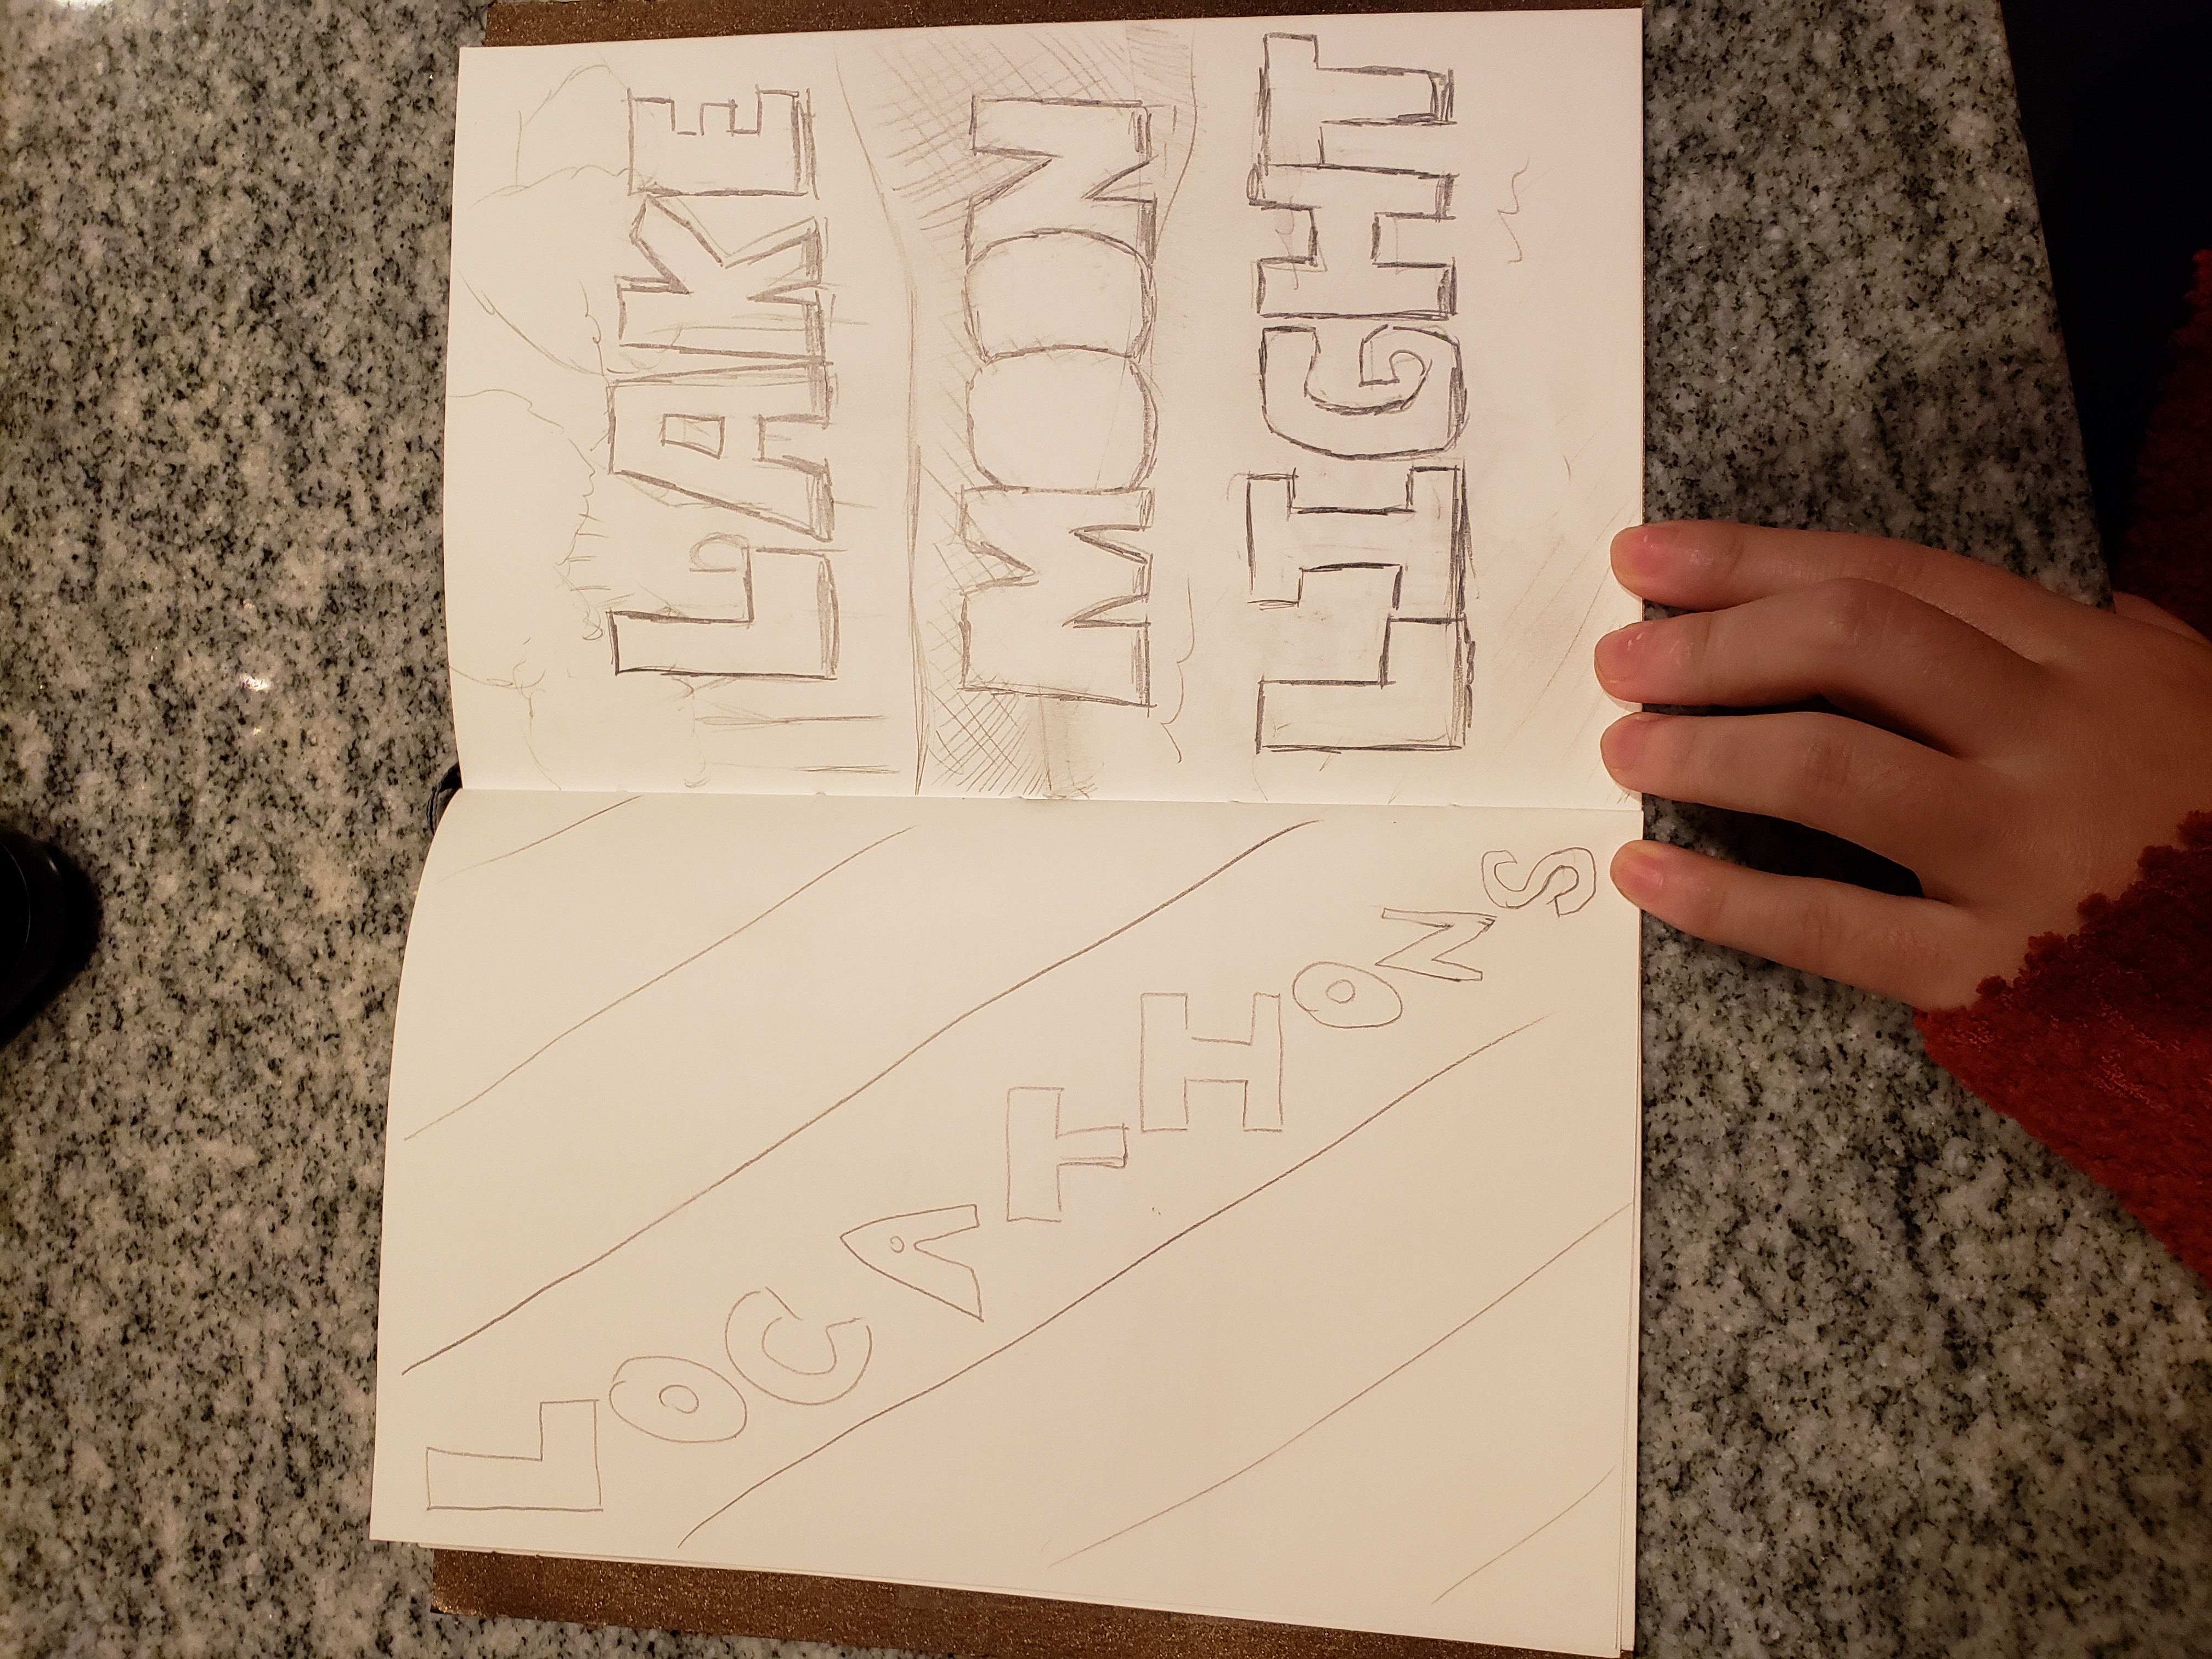 LOCATIONS
LAKE
MOON
LIGHT